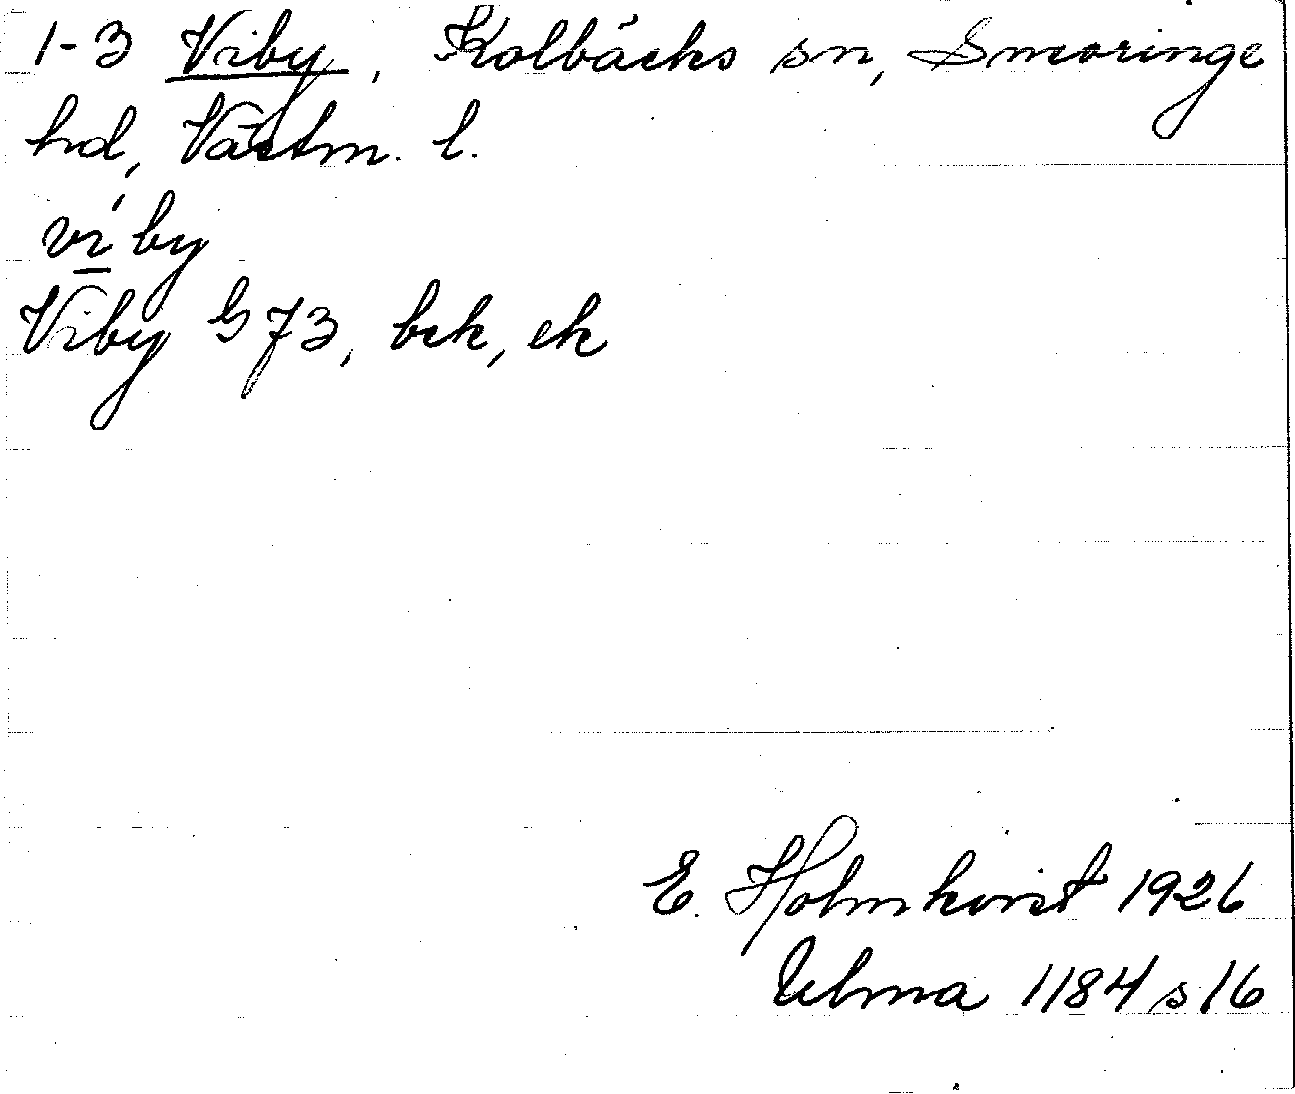 1-3 Viby, Kolbäcks sn, Snevringe
hd, Västm. l.
ví̱by
Viby G 73, bck, ek
E. Holmkvist 1926
Ulma 1184 s 16